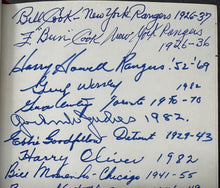 Bill Cook - New York Rangers 1926-37
F "Bun" Cook New York Rangers
1926-36
Harry Howell Rangers '52-'69
Gump Worsley 1982
1970-70
1982
Ebbie Goodfellow Detroit 1929-43
Harry Oliver 1982
Bill Mosienko - Chicago 1941-55